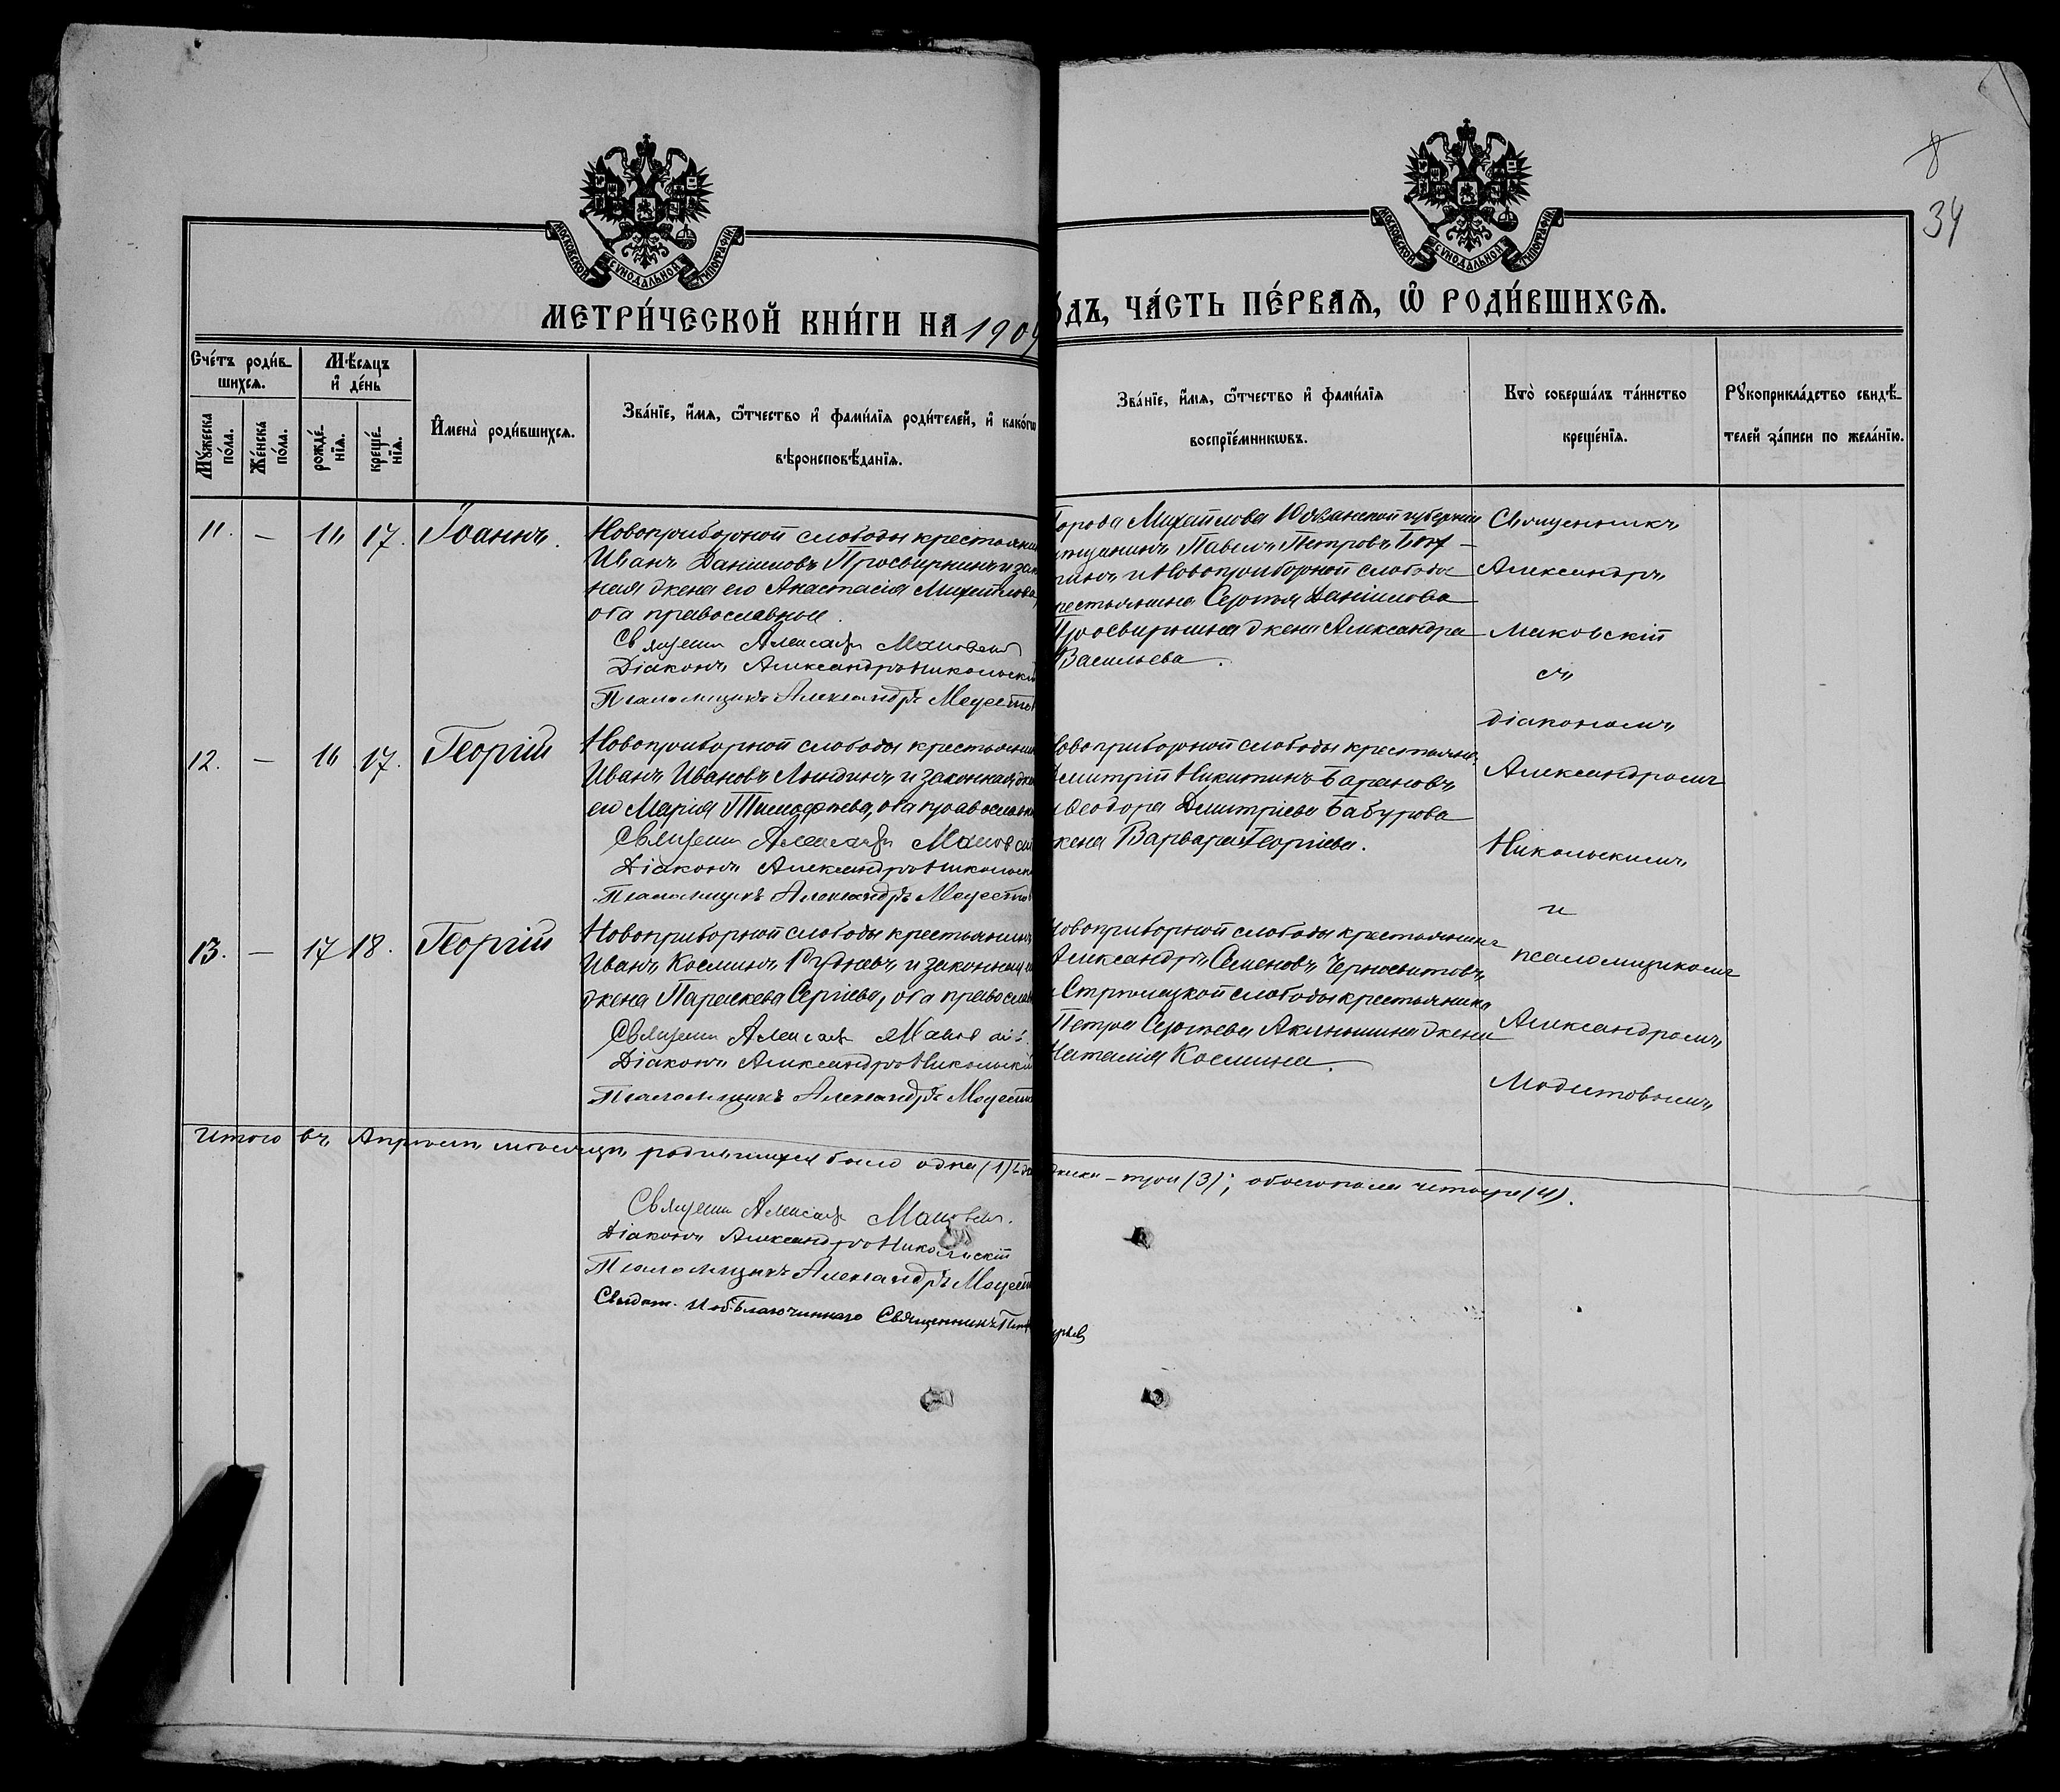 8
34
МОСКОВСКОЙ СѴНОДАЛЬНОЙ ТИПОГРАФІИ
МОСКОВСКОЙ СѴНОДАЛЬНОЙ ТИПОГРАФІИ
МЕТРИ́ЧЕСКОЙ КНИ́ГИ НА 1909
О́ДЪ, ЧА́СТЬ ПЕ́РВАѦ, Ѡ҆ РОДИ́ВШИХСѦ.
Сче́тъ роди́в-
шихсѧ.
Мѣ́сѧцъ
и҆ де́нь
Мꙋ́жеска
по́ла.
Же́нска
по́ла.
рожде́-
нїѧ.
креще́-
нїѧ.
И҆мена̀ роди́вшихсѧ.
Зва́нїе, и҆́мѧ, ѻ҆́тчество и҆ фами́лїѧ роди́телей, и҆ како́гѡ
вѣроисповѣ́данїѧ.
Зва́нїе, и҆́мѧ, ѻ҆́тчество и҆ фами́лїѧ
воспрїе́мникѡвъ.
Кто̀ соверша́лъ та́инство
креще́нїѧ.
Рꙋкоприкла́дство свидѣ́-
телей за́писи по жела́нїю.
11. — 16 17. Іоаннъ.
Новоприборной слободы крестьянин
Иванъ Даниловъ Просвирнинъ и закон
ная жена его Анастасія Михайлова,
оба православные.
Священн Александръ Маковскій
Діаконъ Александръ Никольскій
Псаломщикъ Александръ Модестов
Города Михайлова Рязанской губерніи
мѣщанинъ Павелъ Петровъ
и Новоприборной слободы
крестьянина Сергѣя Данилова
Просвирнина жена Александра
Васильева.
Священникъ
Александръ
Маковскій
съ
діакономъ
Александромъ
Никольскимъ
и
псаломщикомъ
Александромъ
Модестовымъ
12. — 16 17. Георгій
Новоприборной слободы крестьянин
Иванъ Ивановъ Лындинъ и законная же
его Марія Тимофѣева, оба православные
Священн Александръ Маковскій
Діаконъ Александръ Никольскій
Псаломщикъ Александръ Модестов
Новоприборной слободы крестьяне:
Димитрій Никитинъ Барановъ
и Ѳеодора Димитріева Бабурова
жена Варвара Георгіева.
13. — 17 18. Георгій
Новоприборной слободы крестьянинъ
Иванъ Косминъ Рудневъ и законная его
жена Параскева Сергіева, оба православ
Священн Александръ Маковскій.
Діаконъ Александръ Никольскій
Псаломщикъ Александръ Модестов
Новоприборной слободы крестьянинъ
Александръ Семеновъ Черносвитовъ
и Стрѣлецкой слободы крестьянина
Петра Сергѣева Акиньшина жена
Наталія Космина.
Итого въ Апрѣлѣ мѣсяцѣ родившихся было одна (1)
женска — три (3); обоего пола четыре (4).
Священн Александръ Маковскій.
Діаконъ Александръ Никольскій
Псаломщикъ Александръ Модест
Свидѣт. И об. Благочиннаго Священникъ